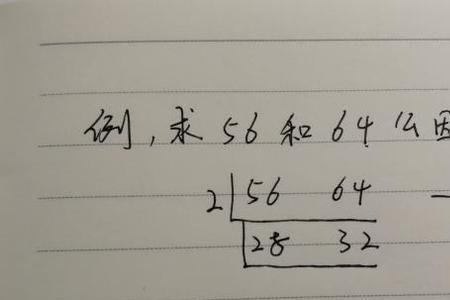 例，求 56 和 64 公因
2 56 64 一
28 32